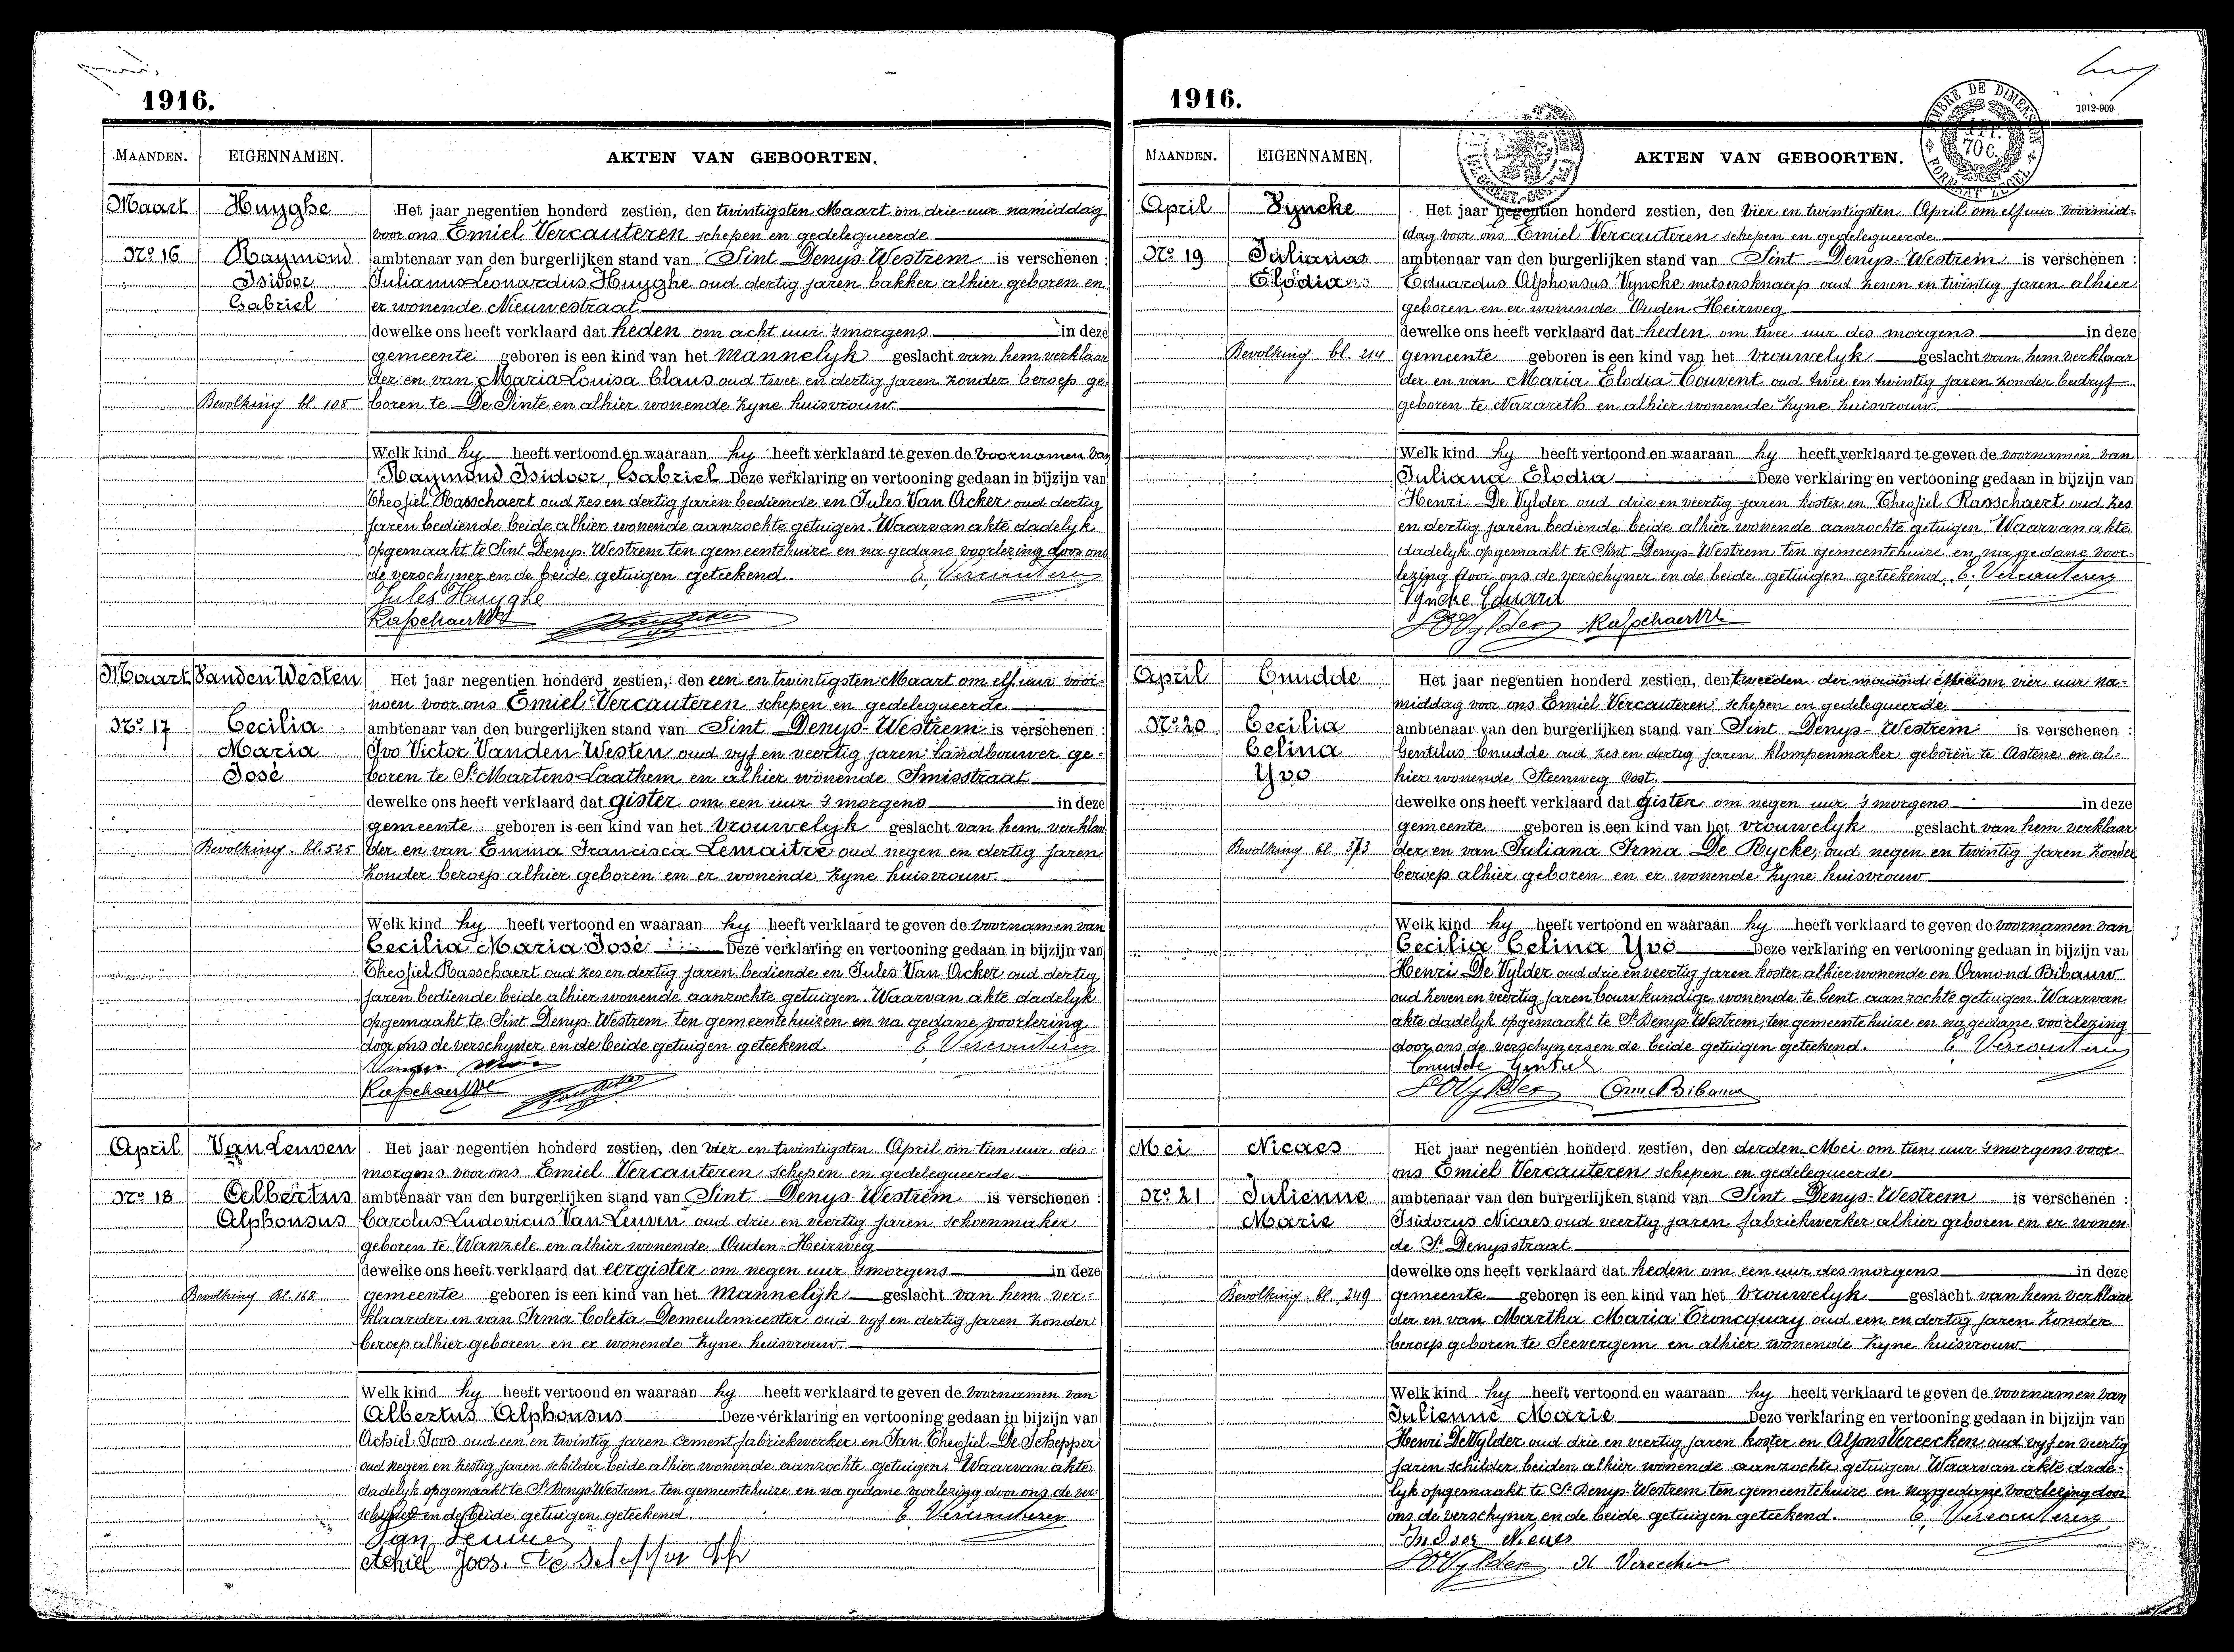 1916.
MAANDEN. EIGENNAMEN. AKTEN VAN GEBOORTEN.
Maart Huyghe Het jaar negentien honderd zestien, den twintigsten Maart om drie uur namiddag
voor ons Emiel Vercauteren schepen en gedelegueerde
No 16 Raymond ambtenaar van den burgerlijken stand van Sint Denys-Westrem is verschenen :
Isidoor Julianus Leonardus Huyghe oud dertig jaren bakker alhier geboren en
Gabriel er wonende Nieuwestraat
dewelke ons heeft verklaard dat heden om acht uur 's morgens in deze
gemeente geboren is een kind van het Mannelyk geslacht van hem verklaar
der en van Maria Louisa Claus oud twee en dertig jaren zonder beroep ge-
Bevolking bl. 108 boren te De Pinte en alhier wonende zyne huisvrouw.
Welk kind hy heeft vertoond en waaraan hy heeft verklaard te geven de voornamen van
Raymond Isidoor, Gabriel Deze verklaring en vertooning gedaan in bijzijn van
Theofiel Rasschaert oud zes en dertig jaren bediende en Jules Van Acker oud dertig
jaren bediende beide alhier wonende aanzochte getuigen. Waarvan akte dadelyk
opgemaakt te Sint Denys-Westrem ten gemeentehuize en na gedane voorlezing door ons
de verschyner en de beide getuigen geteekend. E. Vercauteren
Jules Huyghe
Rasschaert
Maart Vanden Westen Het jaar negentien honderd zestien, den een en twintigsten Maart om elf uur voor-
noen voor ons Emiel Vercauteren schepen en gedelegueerde
No 17 Cecilia ambtenaar van den burgerlijken stand van Sint Denys-Westrem is verschenen :
Maria Ivo Victor Vanden Westen oud vyf en veertig jaren landbouwer ge-
José boren te St Martens-Laathem en alhier wonende Smisstraat
dewelke ons heeft verklaard dat gister om een uur 's morgens in deze
gemeente geboren is een kind van het Vrouwelyk geslacht van hem verklaar
Bevolking bl. 525 der en van Emma Francisca Lemaitre oud negen en dertig jaren
zonder beroep alhier geboren en er wonende zyne huisvrouw.
Welk kind hy heeft vertoond en waaraan hy heeft verklaard te geven de voornamen van
Cecilia Maria José Deze verklaring en vertooning gedaan in bijzijn van
Theofiel Rasschaert oud zes en dertig jaren bediende en Jules Van Acker oud dertig
jaren bediende beide alhier wonende aanzochte getuigen. Waarvan akte dadelyk
opgemaakt te Sint Denys-Westrem ten gemeentehuizen en na gedane voorlezing
door ons de verschyner en de beide getuigen geteekend. E. Vercauteren
Rasschaert
April Van Leuven Het jaar negentien honderd zestien, den vier en twintigsten April om tien uur des
morgens voor ons Emiel Vercauteren schepen en gedelegueerde
No 18 Albertus ambtenaar van den burgerlijken stand van Sint Denys Westrem is verschenen :
Alphonsus Carolus Ludovicus Van Leuven oud drie en veertig jaren schoenmaker
geboren te Wanzele en alhier wonende Ouden-Heirweg
dewelke ons heeft verklaard dat eergister om negen uur 's morgens in deze
Bevolking bl. 168 gemeente geboren is een kind van het Mannelyk geslacht van hem ver-
klaarder en van Irma Coleta Demeulemeester oud vyf en dertig jaren zonder
beroep alhier geboren en er wonende zyne huisvrouw.
Welk kind hy heeft vertoond en waaraan hy heeft verklaard te geven de voornamen van
Albertus Alphonsus Deze verklaring en vertooning gedaan in bijzijn van
Achiel Joos oud een en twintig jaren cement fabriekwerker en Jan Theofiel De Schepper
oud negen en zestig jaren schilder beide alhier wonende aanzochte getuigen. Waarvan akte
dadelyk opgemaakt te St Denys-Westrem ten gemeentehuize en na gedane voorlezing door ons de ver-
schyner en de beide getuigen geteekend. E. Vercauteren
Van Leuven
Achiel Joos. De Schepper
1916.
1912-909
MAANDEN. EIGENNAMEN. AKTEN VAN GEBOORTEN.
April Vyncke Het jaar negentien honderd zestien, den vier en twintigsten April om elf uur voormid-
dag voor ons Emiel Vercauteren schepen en gedelegueerde
No 19 Juliana ambtenaar van den burgerlijken stand van Sint Denys-Westrem is verschenen :
Elodia Eduardus Alphonsus Vyncke metsersknaap oud zeven en twintig jaren alhier
geboren en er wonende Ouden Heirweg
dewelke ons heeft verklaard dat heden om twee uur des morgens in deze
Bevolking bl. 214 gemeente geboren is een kind van het vrouwelyk geslacht van hem verklaar
der en van Maria Elodia Couvent oud twee en twintig jaren zonder bedryf
geboren te Nazareth en alhier wonende zyne huisvrouw.
Welk kind hy heeft vertoond en waaraan hy heeft verklaard te geven de voornamen van
Juliana Elodia Deze verklaring en vertooning gedaan in bijzijn van
Henri De Vylder oud drie en veertig jaren koster en Theofiel Rasschaert oud zes
en dertig jaren bediende beide alhier wonende aanzochte getuigen. Waarvan akte
dadelyk opgemaakt te Sint Denys-Westrem ten gemeentehuize en na gedane voor-
lezing door ons de verschyner en de beide getuigen geteekend. E. Vercauteren
Vyncke Eduard
De Vylder Rasschaert
April Cnudde Het jaar negentien honderd zestien, den tweeden der maand Mei om vier uur na-
middag voor ons Emiel Vercauteren schepen en gedelegueerde
No 20 Cecilia ambtenaar van den burgerlijken stand van Sint Denys-Westrem is verschenen :
Celina Gentilus Cnudde oud zes en dertig jaren klompenmaker geboren te Astene en al-
Yvo hier wonende Steenweg Oost.
dewelke ons heeft verklaard dat gister om negen uur 's morgens in deze
gemeente geboren is een kind van het vrouwelyk geslacht van hem verklaar
Bevolking bl. 373 der en van Juliana Irma De Rycke, oud negen en twintig jaren zonder
beroep alhier geboren en er wonende zyne huisvrouw
Welk kind hy heeft vertoond en waaraan hy heeft verklaard te geven de voornamen van
Cecilia Celina Yvo Deze verklaring en vertooning gedaan in bijzijn van
Henri De Vylder oud drie en veertig jaren koster alhier wonende en Ormond Bibauw
oud zeven en veertig jaren bouwkundige wonende te Gent aanzochte getuigen. Waarvan
akte dadelyk opgemaakt te St Denys-Westrem, ten gemeentehuize en na gedane voorlezing
door ons de verschyner en de beide getuigen geteekend. E. Vercauteren
Cnudde Gentiel
De Vylder Orm. Bibauw
Mei Nicaes Het jaar negentien honderd zestien, den derden Mei om tien uur 's morgens voor
ons Emiel Vercauteren schepen en gedelegueerde
No 21 Julienne ambtenaar van den burgerlijken stand van Sint Denys-Westrem is verschenen :
Marie Isidorus Nicaes oud veertig jaren fabriekwerker alhier geboren en er wonen-
de St Denysstraat
dewelke ons heeft verklaard dat heden om een uur des morgens in deze
Bevolking bl. 249 gemeente geboren is een kind van het Vrouwelyk geslacht van hem verklaar
der en van Martha Maria Troncquay oud een en dertig jaren zonder
beroep geboren te Seevergem en alhier wonende zyne huisvrouw
Welk kind hy heeft vertoond en waaraan hy heeft verklaard te geven de voornamen van
Julienne Marie Deze verklaring en vertooning gedaan in bijzijn van
Henri De Vylder oud drie en veertig jaren koster en Alfons Vereecken oud vyf en veertig
jaren schilder beiden alhier wonende aanzochte getuigen Waarvan akte dade-
lyk opgemaakt te St Denys-Westrem ten gemeentehuize en na gedane voorlezing door
ons de verschyner en de beide getuigen geteekend. E. Vercauteren
De Vylder A Vereecken